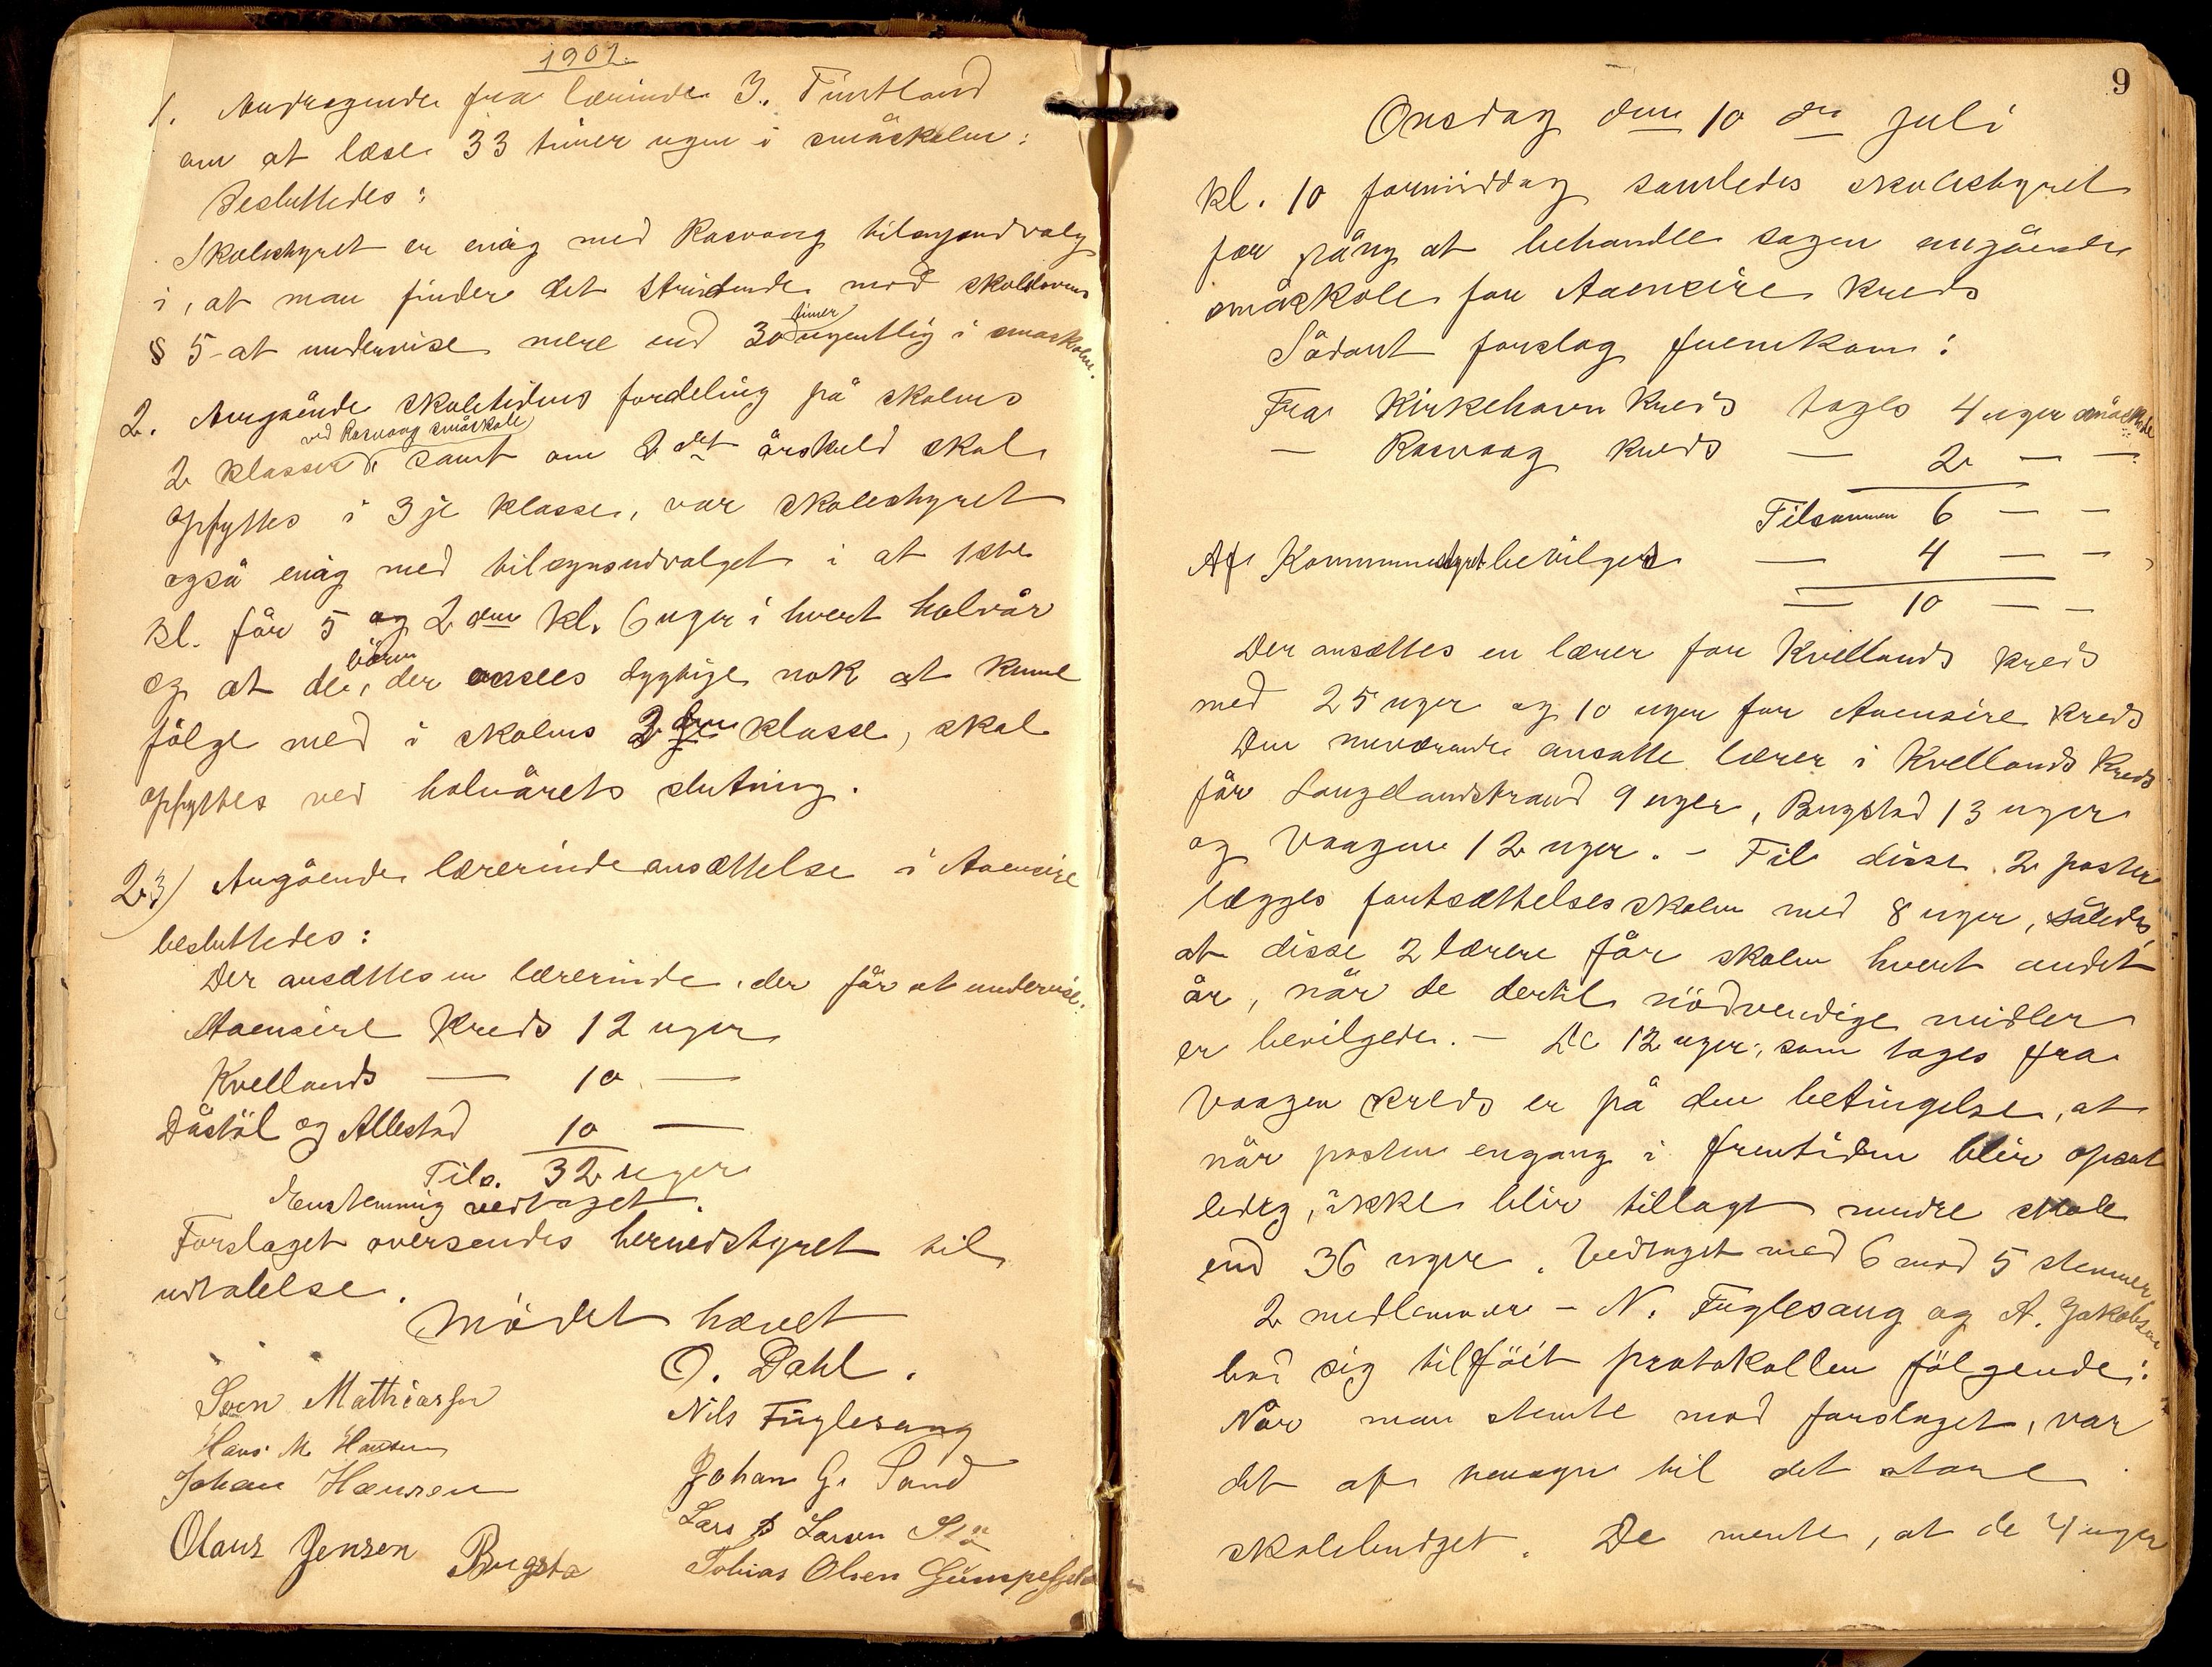 1901.
1. Andragende fra lærerinde J. Tuntland
om at læse 33 timer ugen i småskolen:
Besluttedes:
Skolestyret er enig med Rasvaag tilsynsudvalg
i, at man finder det stridende mod skolelovens
§ 5 at undervise mere end 30 timer ugentlig i småskolen.
2. Angående skoletidens fordeling på skolens
2 klasser ved Rasvaag småskole, samt om 2det årskuld skal
opflyttes i 3je klasse, var skolestyret
også enig med tilsynsudvalget i at 1ste
kl. får 5 og 2den kl. 6 uger i hvert halvår
og at de børn, der ansees dygtige nok at kunne
følge med i skolens 2den klasse, skal
opflyttes ved halvårets slutning.
3) Angående lærerindeansættelse i Aaensire
besluttedes:
Der ansættes en lærerinde, der får at undervise:
Aaensire Kreds 12 uger
Kvellands — 10 —
Dåstöl og Allestad 10 —
Tils. 32 uger
Enstemmig vedtaget.
Forslaget oversendes herredstyret til
udtalelse.
Mødet hævet
O. Dahl.
Sven Mathiassen
Nils Fuglesang
Hans M. Hansen
Johan G. Sand
Johan Hansen
Lars Larsen
Olaus Jensen Bugsta
Tobias Olsen Gumpefjeld
9
Onsdag den 10de juli
kl. 10 formiddag samledes skolestyret
for påny at behandle sagen angående
småskole for Aaensire kreds
Sådant forslag fremkom:
Fra Kirkehavn kreds tages 4 uger småskole
— Rasvaag kreds — 2 — —
Tilsammen 6 — —
Af Kommunestyret bevilges — 4 — —
— 10 — —
Der ansættes en lærer for Kvellands kreds
med 25 uger og 10 uger for Aaensire kreds
Den nuværende ansatte lærer i Kvellands Kreds
får Laugelandstrand 9 uger, Bugstad 13 uger
og Vaagene 12 uger. — Til disse 2 poster
lægges fortsættelsesskolen med 8 uger, således,
at disse 2 lærere får skolen hvert andet
år, når de dertil nödvendige midler
er bevilgede. — De 12 uger, som tages fra
Vaagen kreds er på den betingelse, at
når posten engang i fremtiden blir opsat
ledig, ikke blir tillagt mindre skole
end 36 uger. Vedtaget med 6 mod 5 stemmer
2 medlemmer — N. Fuglesang og A. Jakobsen
bad sig tilföit protokollen fölgende:
Når man stemte mod forslaget, var
det af hensyn til det store
skolebudget. De mente, at de 4 uger